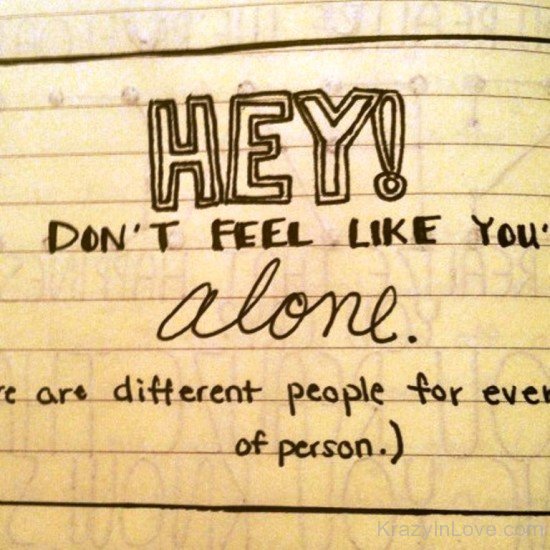 HEY!
DON'T FEEL LIKE YOU'
alone.
re are different people for ever
of person.)
KrazyInLove.com